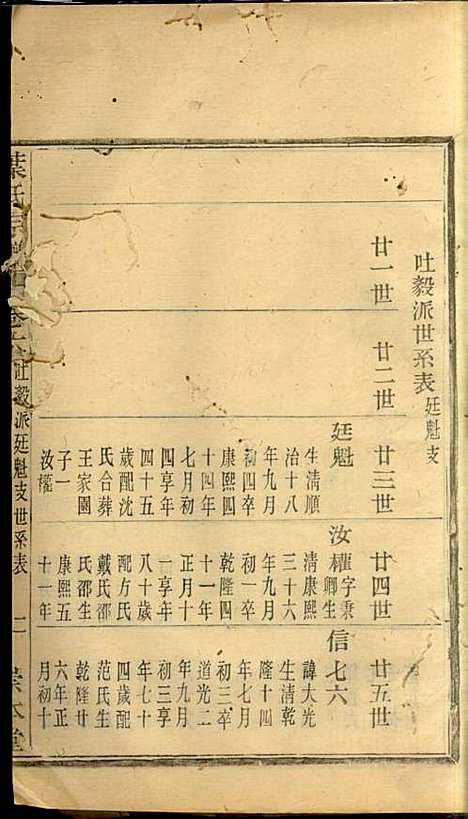 吐毅派世系表 廷魁支
廿一世
廿二世
廿三世
廿四世
廿五世
廷魁
生清順
治十八
年九月
初四卒
康熙四
十四年
七月初
四享年
四十五
歲配沈
氏合葬
王家園
子一
汝權
汝權 字秉卿生
清康熙
三十六
年九月
初一卒
乾隆四
十一年
正月十
一享年
八十歲
配方氏
戴氏邵
氏邵生
康熙五
十一年
信七六
諱大光
生清乾
隆十四
年七月
初三卒
道光二
年九月
初三享
年七十
四歲配
范氏生
乾隆廿
六年正
月初十
葉氏宗譜 卷六 吐毅派廷魁支世系表 二 崇本堂